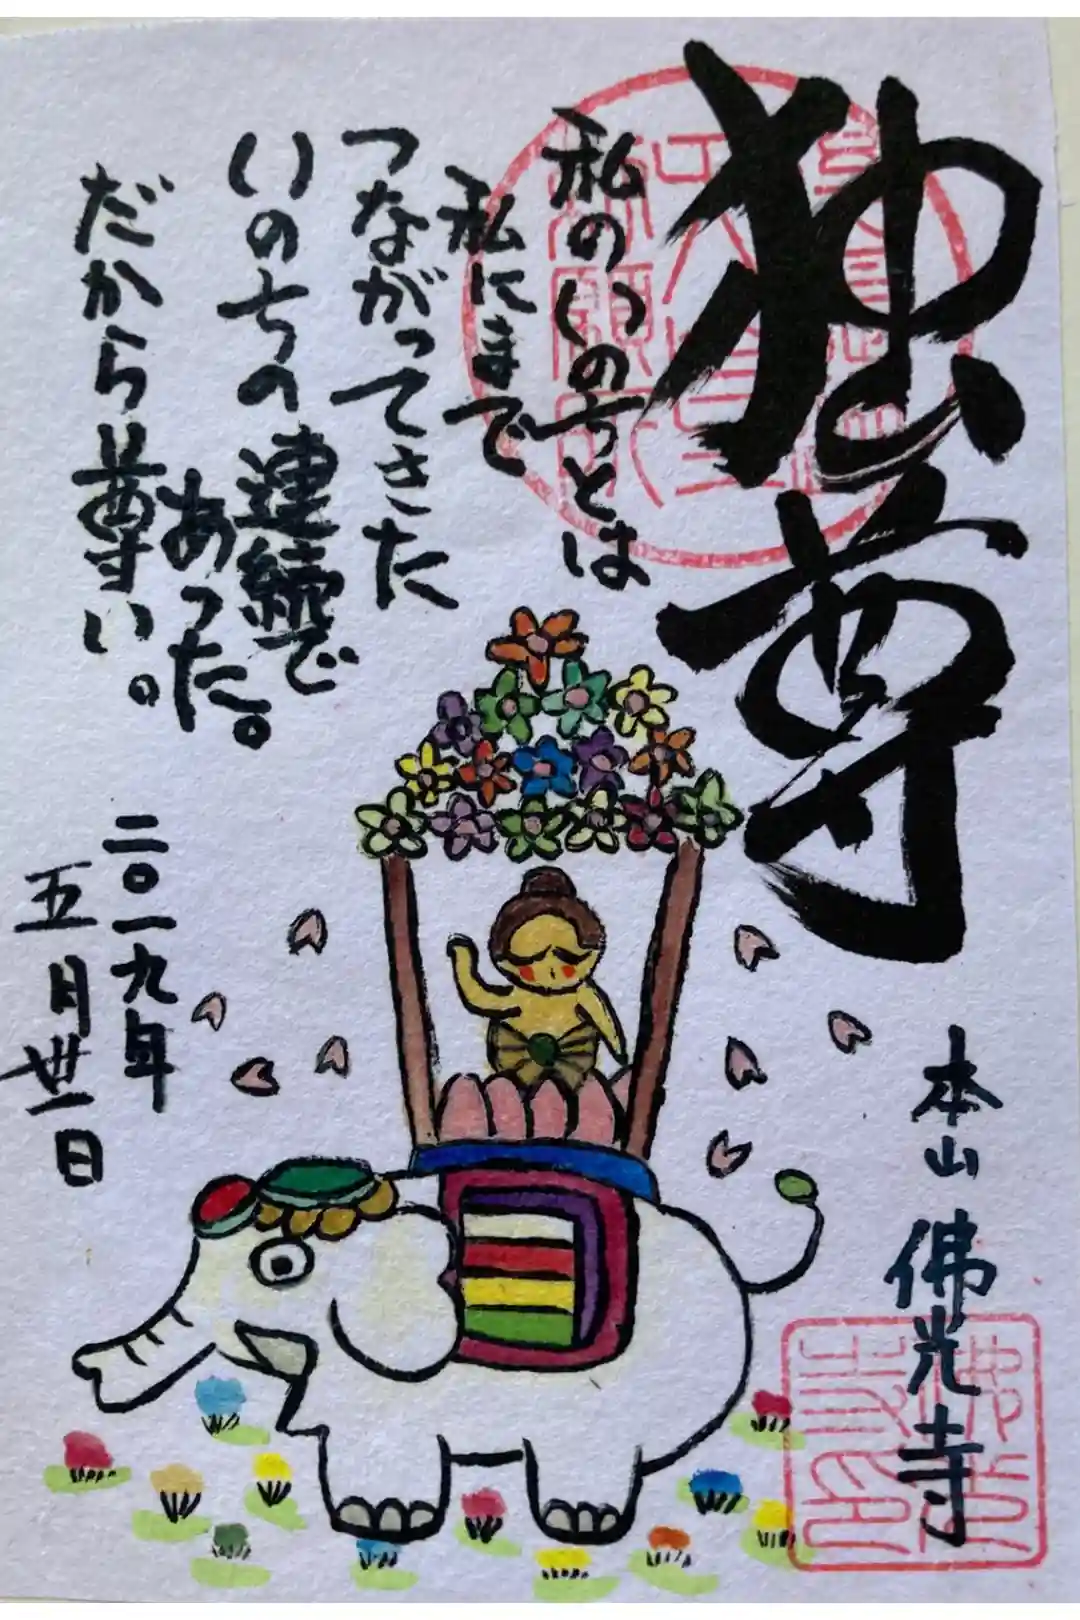 独尊
私のいのちとは
私にまで
つながってきた
いのちの連続で
あった。
だから尊い。
二〇一九年
五月卅一日
本山 佛光寺